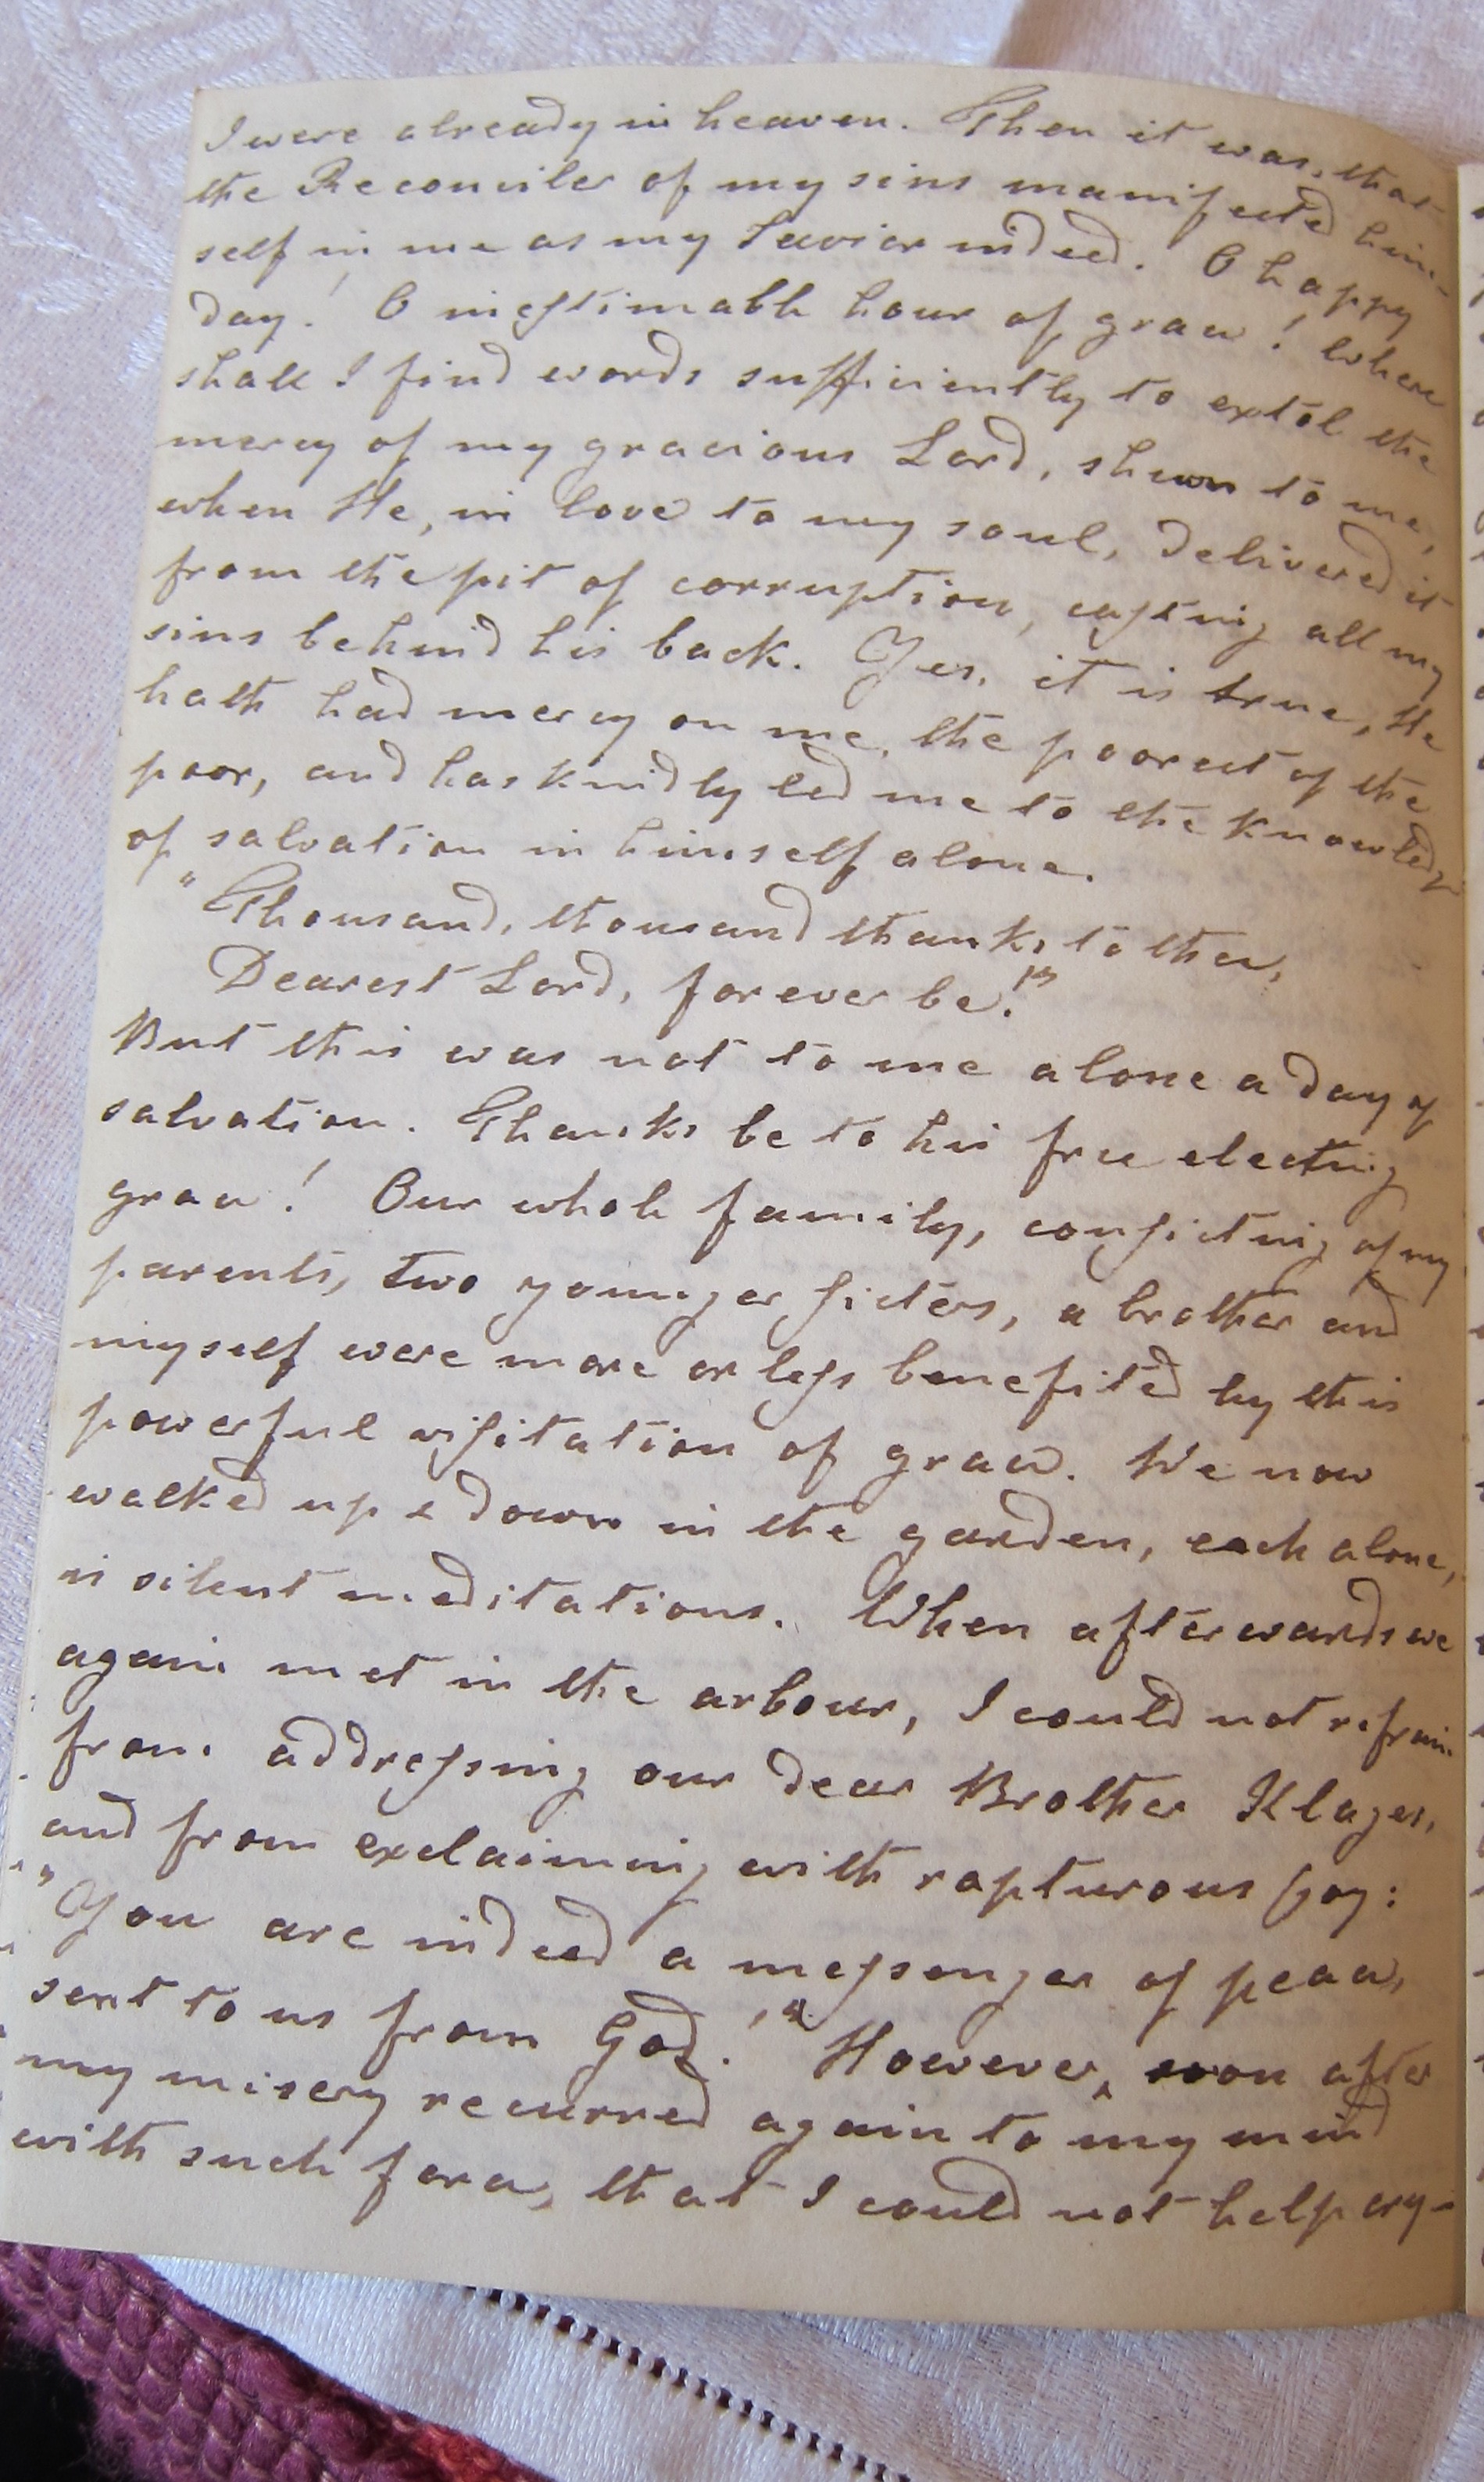 I were already in heaven. Then it was, that
the Reconciler of my sins manifested him-
self in me as my Savior indeed. O happy
day! O inestimable hour of grace! Where
shall I find words sufficiently to extol the
mercy of my gracious Lord, shewn to me,
when He, in love to my soul, delivered it
from the pit of corruption, casting all my
sins behind his back. Yes, it is true, He
hath had mercy on me, the poorest of the
poor, and has kindly led me to the knowledge
of salvation in himself alone.
"Thousand, thousand thanks to thee,
Dearest Lord, forever be!"
But this was not to me alone a day of
salvation. Thanks be to his free electing
grace! Our whole family, consisting of my
parents, two younger sisters, a brother and
myself were more or less benefited by this
powerful visitation of grace. We now
walked up & down in the garden, each alone,
in silent meditations. When afterwards we
again met in the arbour, I could not refrain
from addressing our dear Brother Klages,
and from exclaiming with rapturous joy:
"You are indeed a messenger of peace,
sent to us from God!" However, soon after
my misery recurred again to my mind
with such force, that I could not help cry-